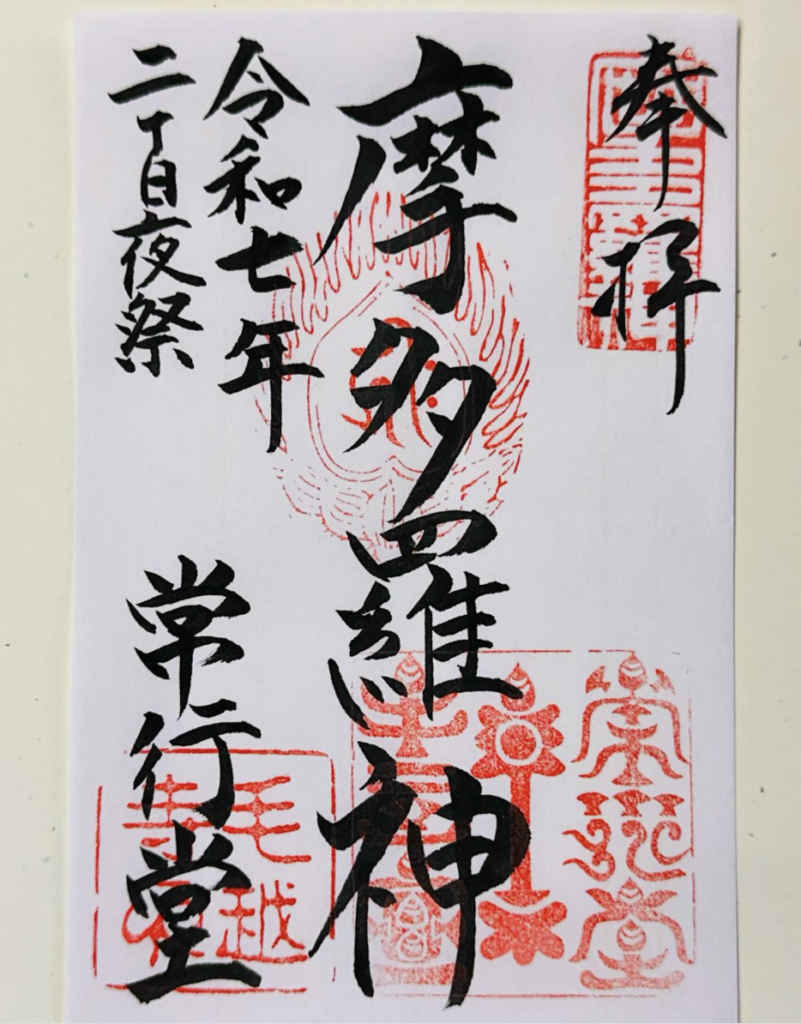 奉拝
摩多羅神
令和七年
二十日夜祭
常行堂
毛越